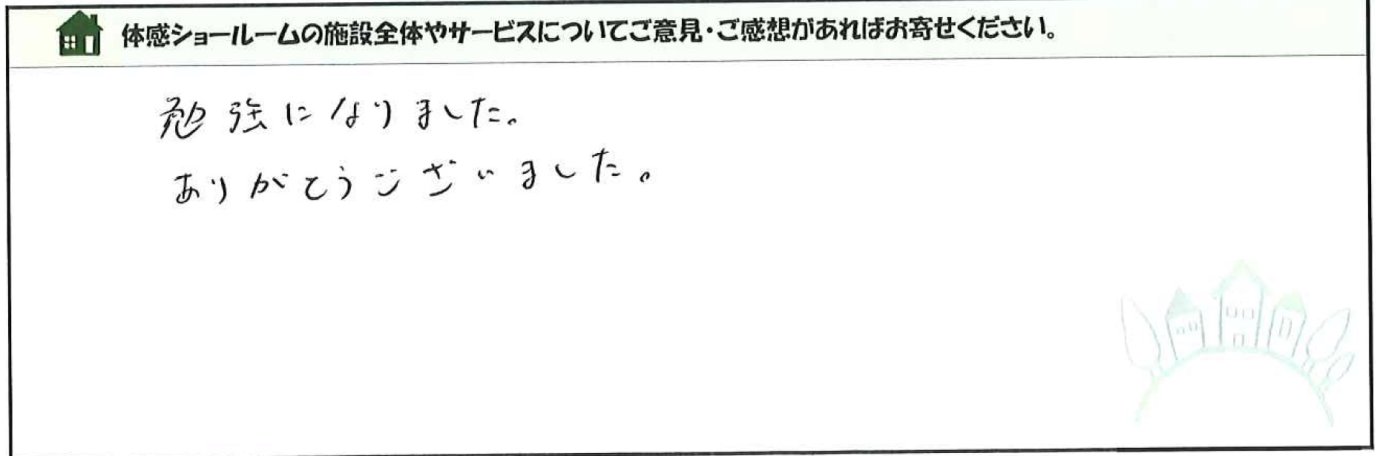 体感ショールームの施設全体やサービスについてご意見・ご感想があればお寄せください。
勉強になりました。
ありがとうございました。